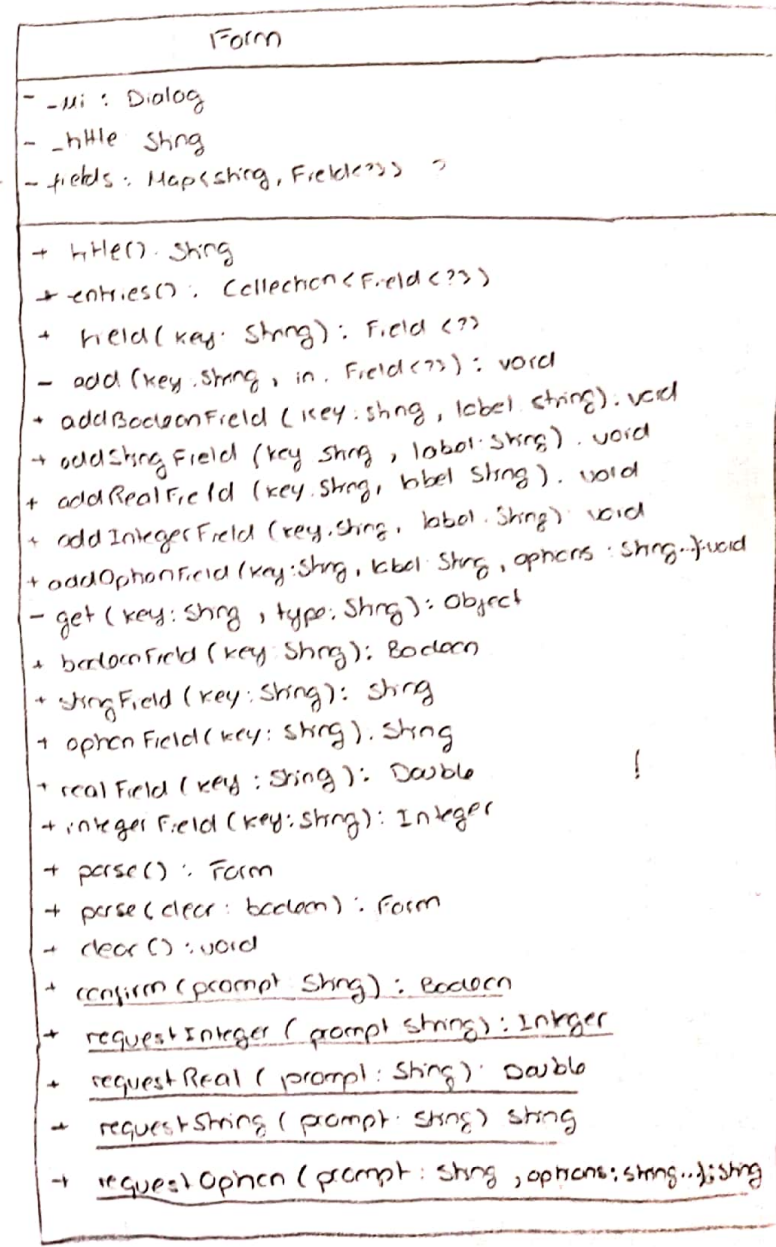 Form
- _ui : Dialog
- _title String
- fields : Map<String, Field<?>> ?
+ title() . String
+ entries() : Collection<Field<?>>
+ field(key: String) : Field <?>
- add (key.String, in. Field<?>) : void
+ addBooleanField (key:String, label String). void
+ addStringField (key String, label. String). void
+ addRealField (key.String, label String). void
+ addIntegerField (key.String, label. String) void
+ addOptionField (key:String, label String, options : String..): void
- get (key: String, type: String): Object
+ booleanField (key String): Boolean
+ stringField (key:String): String
+ optionField (key: String). String
+ realField (key : String): Double
+ integerField (key:String): Integer
+ parse() : Form
+ parse (clear : boolean) : Form
+ clear () : void
+ confirm (prompt String) : Boolean
+ requestInteger (prompt String) : Integer
+ requestReal (prompt : String) . Double
+ requestString (prompt . String) String
+ requestOption (prompt : String, options: String..): String